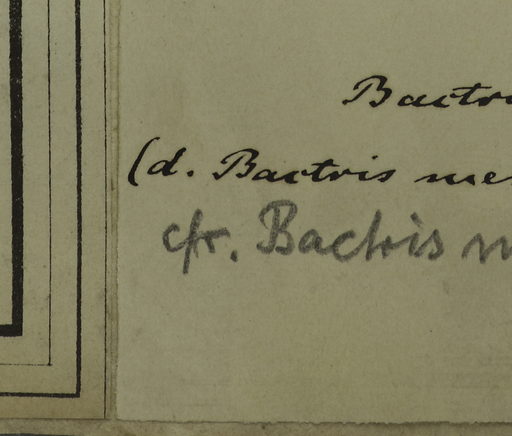 Bactr
(d. Bactris me
cfr. Bactris m